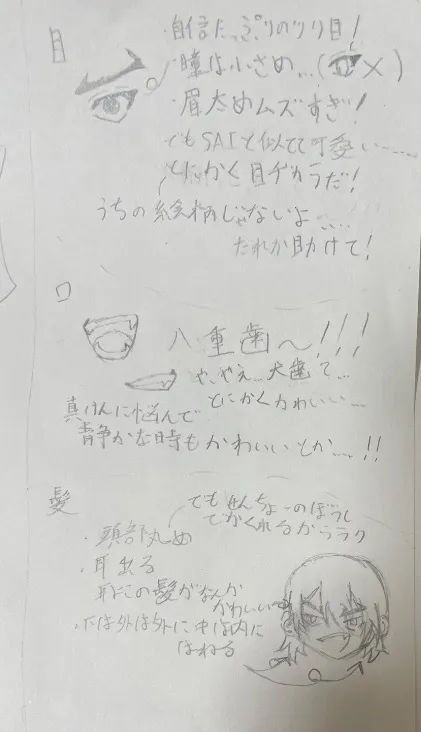 目
・自信たっぷりのツリ目!
・瞳は小さめ…( ×)
・眉太めムズすぎ!
でもSAIと似てて可愛い……
とにかく目ヂカラだ!
うちの絵柄じゃないよ……
だれか助けて!
口
八重歯〜!!!
や、やえ…犬歯て…
とにかくかわいい…
真けんに悩んで
静かな時もかわいいとか…!!
髪
でもせんちょーのぼうし
でかくれるからラク
・頭部丸め
・耳出る
耳にこの髪がなんか
かわいい
・下は外は外に中は内に
はねる